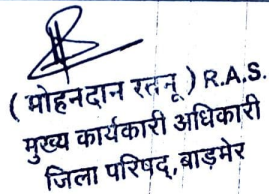 ( मोहनदान रतनू ) R.A.S.
मुख्य कार्यकारी अधिकारी
जिला परिषद, बाड़मेर